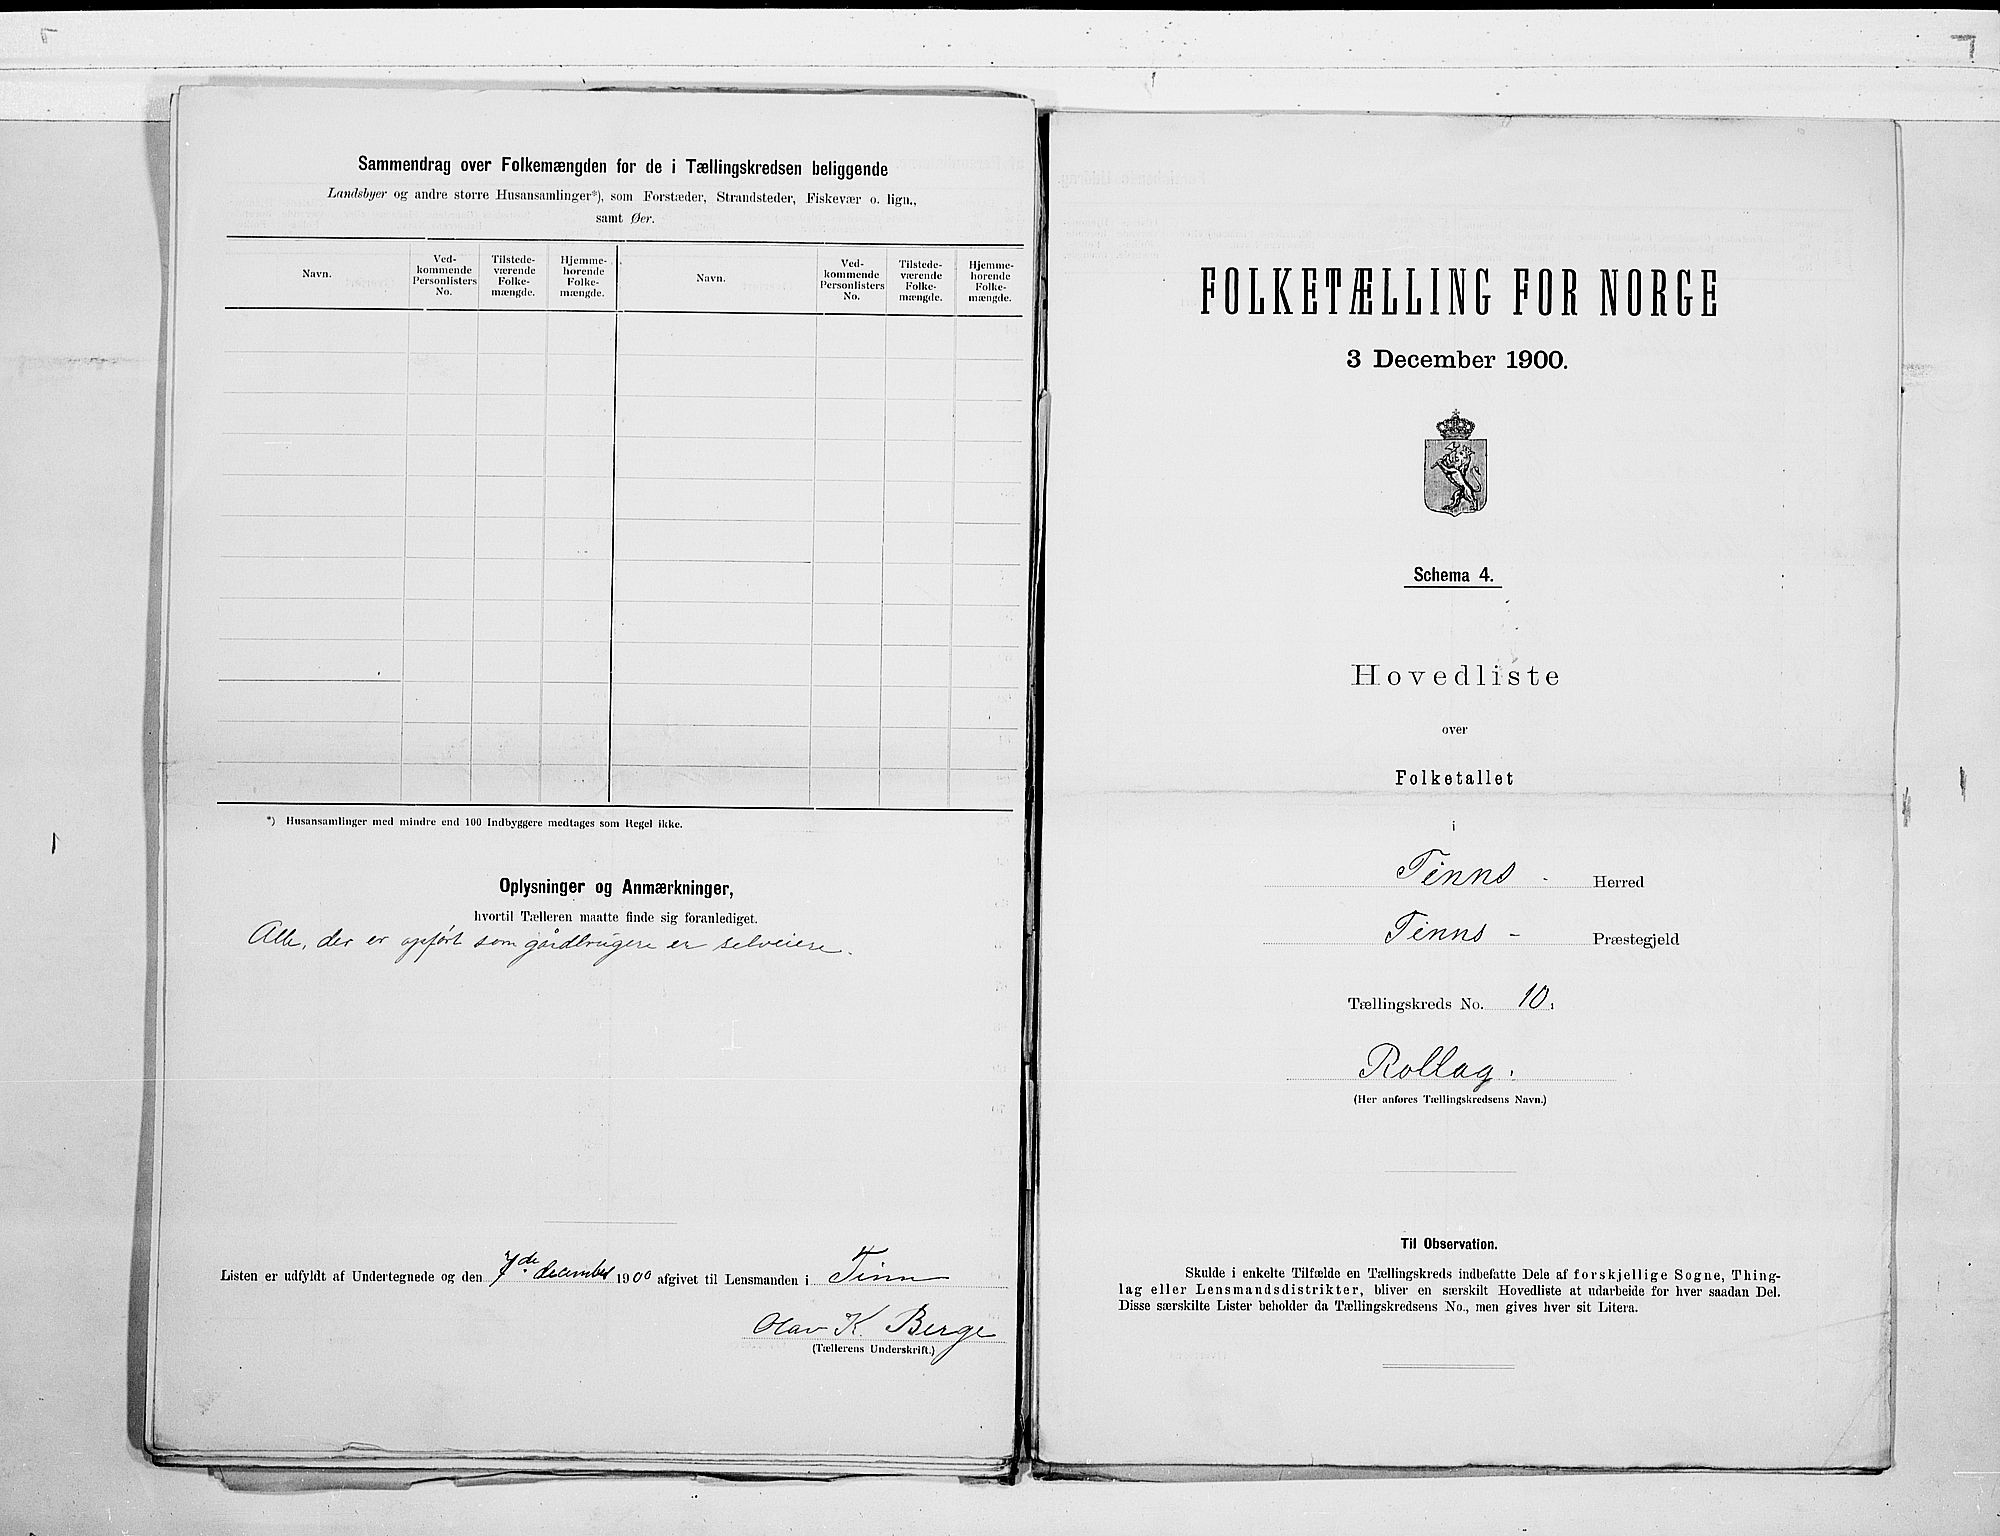 Sammendrag over Folkemængden for de i Tællingskredsen beliggende
Landsbyer og andre større Husansamlinger*), som Forstæder, Strandsteder, Fiskevær o. lign.,
samt Øer.
Navn.
Ved-
kommende
Personlisters
No.
Tilstede-
værende
Folke-
mængde.
Hjemme-
hørende
Folke-
mængde.
Navn.
Ved-
kommende
Personlisters
No.
Tilstede-
værende
Folke-
mængde.
Hjemme-
hørende
Folke-
mængde.
*) Husansamlinger med mindre end 100 Indbyggere medtages som Regel ikke.
Oplysninger og Anmærkninger,
hvortil Tælleren maatte finde sig foranlediget.
Alle, der er opført som gårdbrugere er selveiere.
Listen er udfyldt af Undertegnede og den 7de december 1900 afgivet til Lensmanden i Tinn
Olav K. Berge
(Tællerens Underskrift.)
FOLKETÆLLING FOR NORGE
3 December 1900.
Schema 4.
Hovedliste
over
Folketallet
i
Tinns - Herred
Tinns - Præstegjeld
Tællingskreds No. 10.
Rollag.
(Her anføres Tællingskredsens Navn.)
Til Observation.
Skulde i enkelte Tilfælde en Tællingskreds indbefatte Dele af forskjellige Sogne, Thing-
lag eller Lensmandsdistrikter, bliver en særskilt Hovedliste at udarbeide for hver saadan Del.
Disse særskilte Lister beholder da Tællingskredsens No., men gives hver sit Litera.